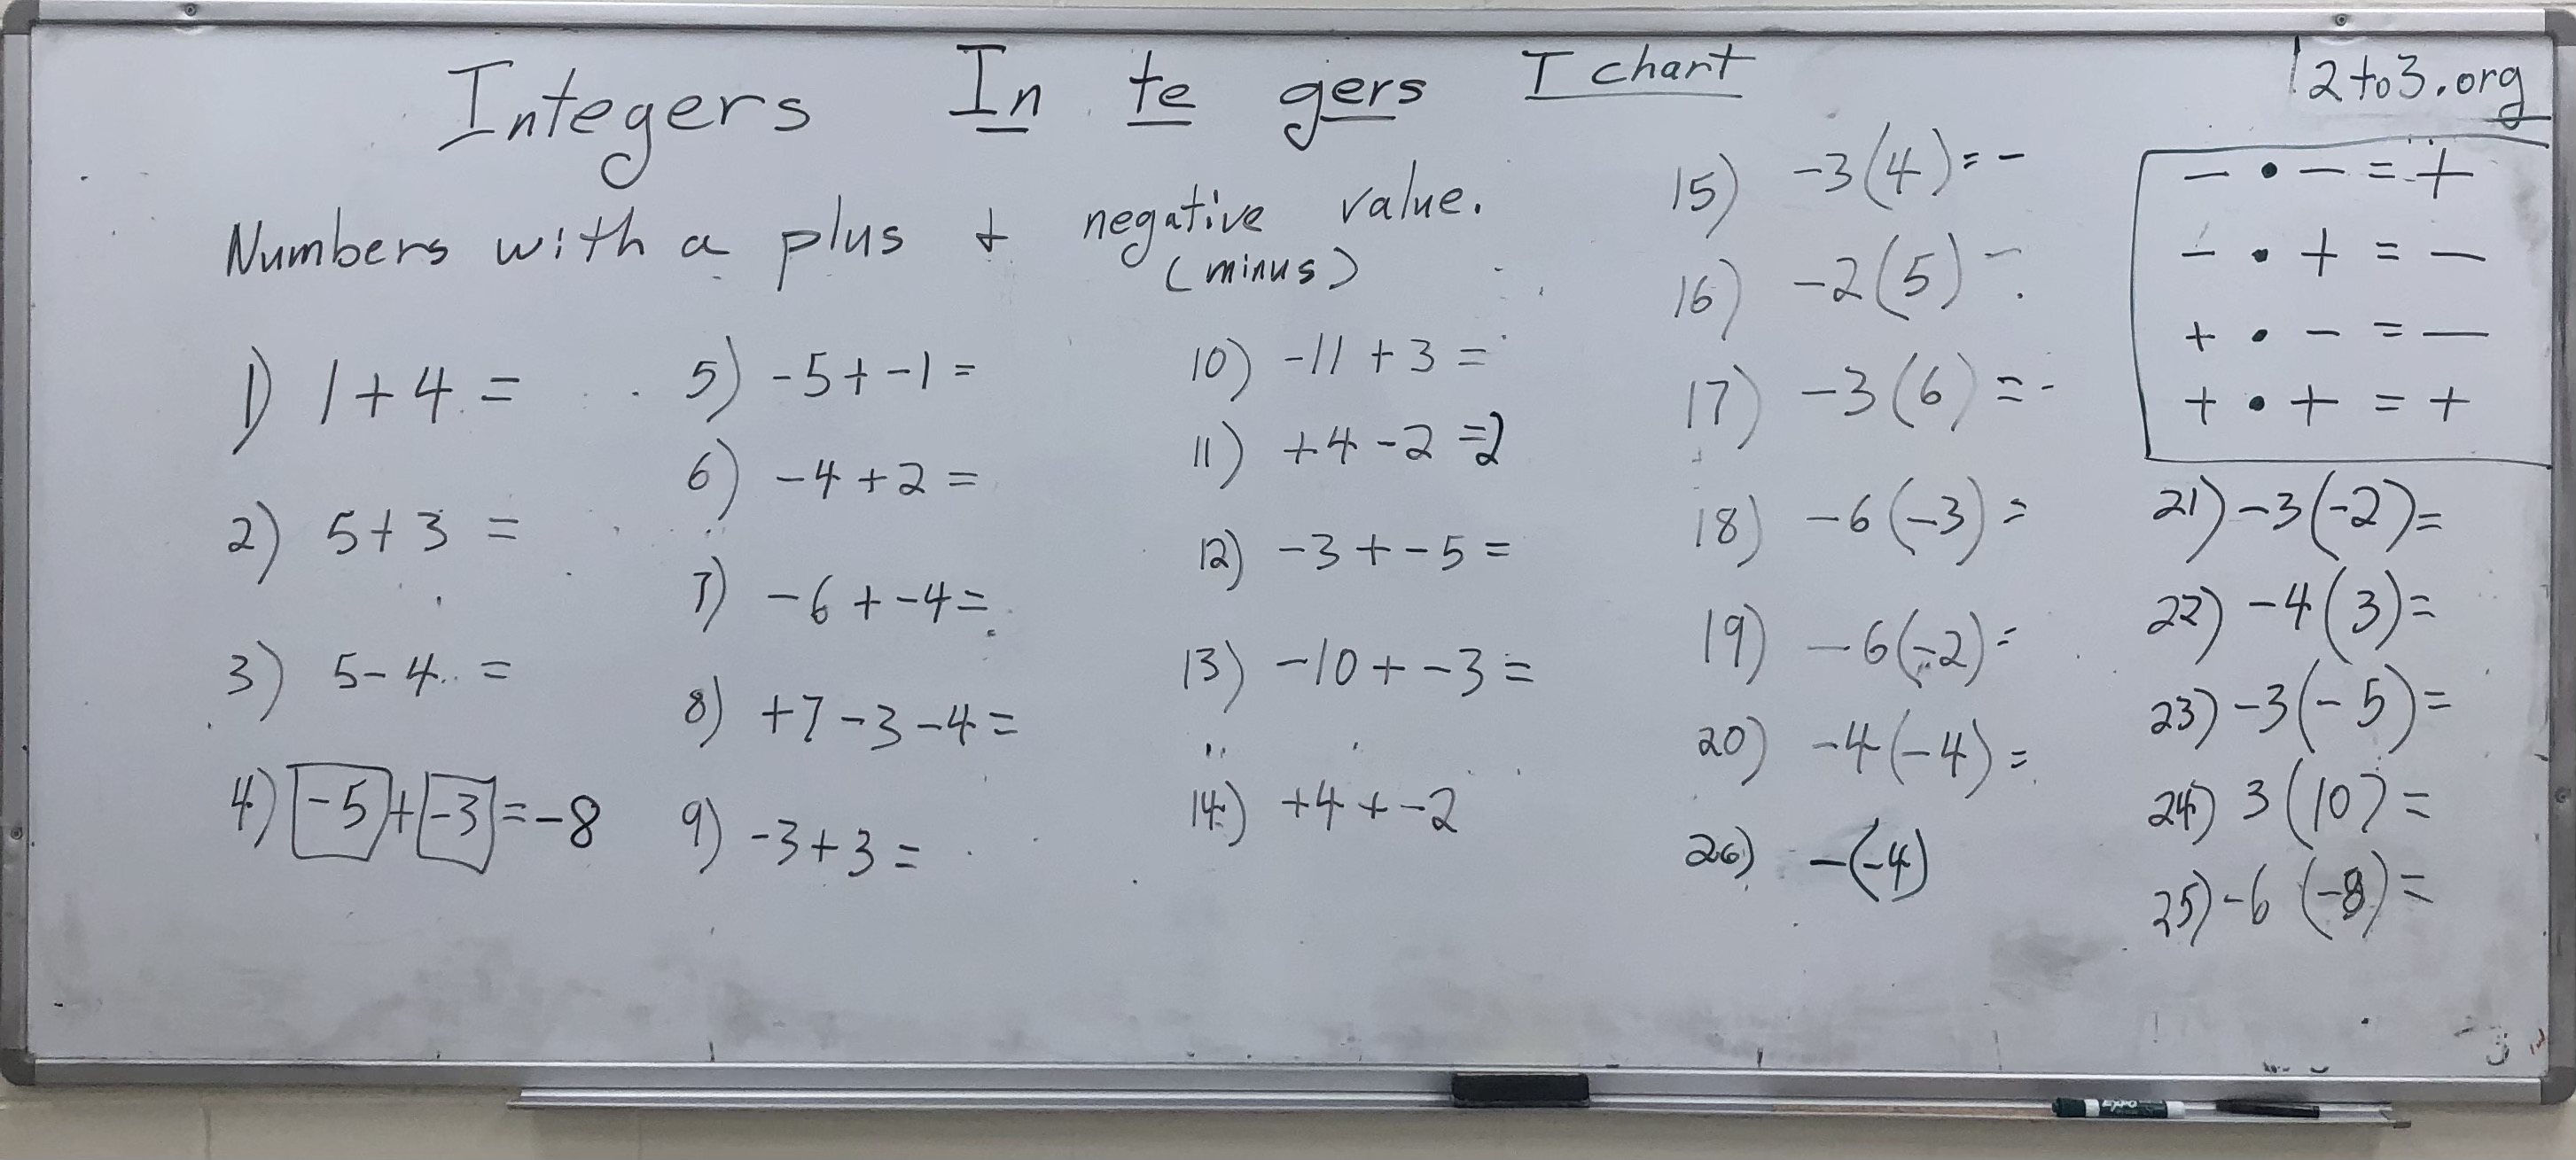 Integers In te gers T chart
12to3.org
Numbers with a plus + negative value.
(minus)
1) 1 + 4 =
2) 5 + 3 =
3) 5 - 4 =
4) -5 + -3 = -8
5) -5 + -1 =
6) -4 + 2 =
7) -6 + -4 =
8) +7 - 3 - 4 =
9) -3 + 3 =
10) -11 + 3 =
11) +4 - 2 = 2
12) -3 + -5 =
13) -10 + -3 =
14) +4 + -2
15) -3(4) = -
16) -2(5) -
17) -3(6) = -
18) -6(-3) =
19) -6(-2) =
20) -4(-4) =
26) -(-4)
- • - = +
- • + = -
+ • - = -
+ • + = +
21) -3(-2) =
22) -4(3) =
23) -3(-5) =
24) 3(10) =
25) -6(-8) =
EXPO